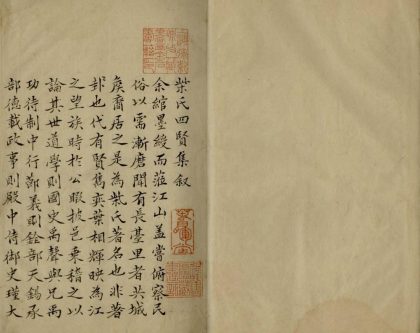 柴氏四賢集叙
余綰墨綬而蒞江山蓋嘗俯察民
俗以需漸磨聞有長臺里者其城
侯裔居之是為柴氏著名也非著
邦也代有賢雋奕葉相輝映為江
之望族時於公暇披邑乘稽之以
論其世道學則國史禹聲與兄禹
功待制中行鄒義則銓部天錫承
部德載政事則殿中侍御史瑾大